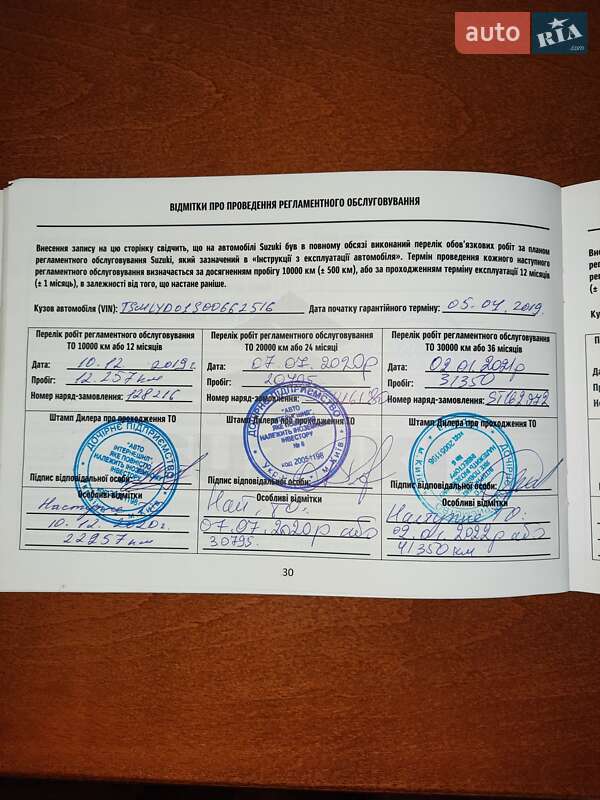 auto RIA .com
ВІДМІТКИ ПРО ПРОВЕДЕННЯ РЕГЛАМЕНТНОГО ОБСЛУГОВУВАННЯ
Внесення запису на цю сторінку свідчить, що на автомобілі Suzuki був в повному обсязі виконаний перелік обов'язкових робіт за планом
регламентного обслуговування Suzuki, який зазначений в «Інструкції з експлуатації автомобіля». Термін проведення кожного наступного
регламентного обслуговування визначається за досягненням пробігу 10000 км (± 500 км), або за проходженням терміну експлуатації 12 місяців
(± 1 місяць), в залежності від того, що настане раніше.
Кузов автомобіля (VIN): TSMLYD01S00662516 Дата початку гарантійного терміну: 05.07.2019
Перелік робіт регламентного обслуговування
ТО 10000 км або 12 місяців
Дата: 10.12 2019г.
Пробіг: 12.257 км
Номер наряд-замовлення: 128216
Штамп Дилера про проходження ТО
ДОЧІРНЕ ПІДПРИЄМСТВО
"АВТО
ІНТЕРНЕШНЛ"
ЯКЕ ПОВНІСТЮ
НАЛЕЖИТЬ ІНОЗЕМНОМУ
ІНВЕСТОРУ
Підпис відповідальної особи:
Особливі відмітки
10.12.2020г.
22257 км
Перелік робіт регламентного обслуговування
ТО 20000 км або 24 місяців
Дата: 07.07.2020р
Пробіг: 20795
Номер наряд-замовлення:
Штамп Дилера про проходження ТО
ДОЧІРНЄ ПІДПРИЄМСТВО
"АВТО
ЯКЕ ПОВНІСТЮ
НАЛЕЖИТЬ ІНОЗЕМНОМУ
ІНВЕСТОРУ
№ 6
код 20051198
м. КИЇВ
Підпис відповідальної особи:
Особливі відмітки
07.07.2020р або
30795.
Перелік робіт регламентного обслуговування
ТО 30000 км або 36 місяців
Дата: 09.01.2021р
Пробіг: 31350
Номер наряд-замовлення:
Штамп Дилера про проходження ТО
Підпис відповідальної особи:
Особливі відмітки
Наступне ТО:
09.01.2022р або
41350 км
30